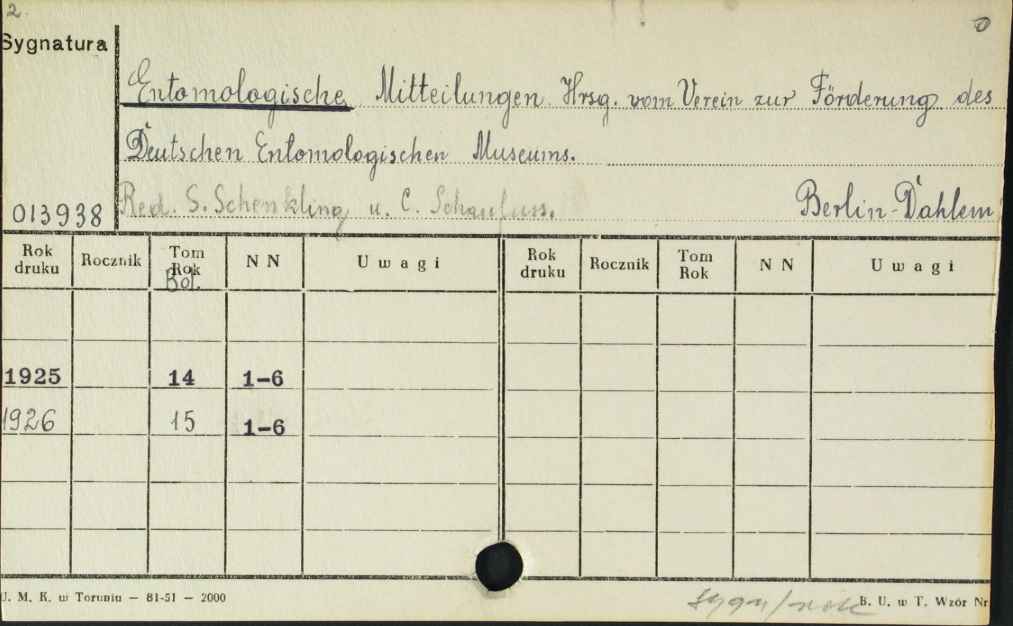 2.
Sygnatura
Entomologische Mitteilungen. Hrsg. vom Verein zur Förderung des
Deutschen Entomologischen Museums.
013938 Red. S. Schenkling u. C. Schaufuss. Berlin-Dahlem
Rok druku Rocznik Tom Rok Bd. N N Uwagi Rok druku Rocznik Tom Rok N N Uwagi
1925 14 1-6
1926 15 1-6
U. M. K. w Toruniu — 81-51 — 2000 B. U. w T. Wzór Nr